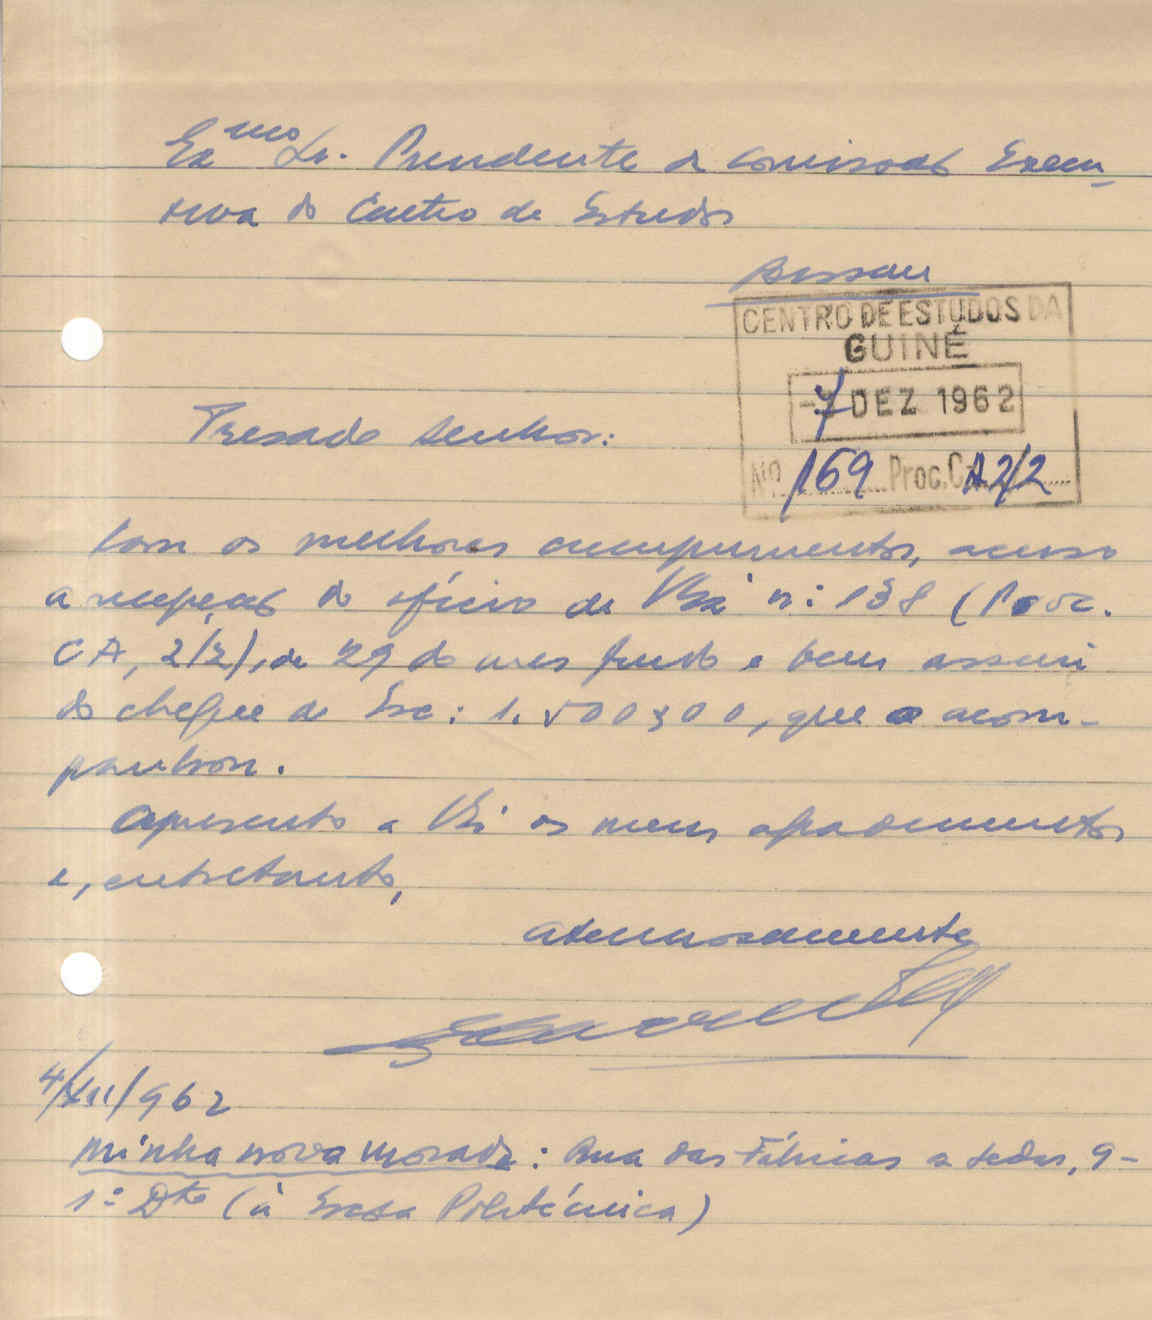 Exmo Sr. Presidente da Comissão Execu-
tiva do Centro de Estudos
Bissau
CENTRO DE ESTUDOS DA
GUINÉ
-7 DEZ 1962
Nº 169 Proc. CA 2/2
Prezado Senhor:
Com os melhores cumprimentos, acuso
a recepção do ofício de V. Exa nº: 138 (Proc.
CA, 2/2), de 29 do mês findo e bem assim
do cheque de Esc: 1.500$00, que o acom-
panhou.
Apresento a V. Exa os meus agradecimentos
e, entretanto,
atenciosamente
4/XII/962
minha nova morada: Rua das Fábricas a Sedas, 9-
1º Dto (à Escola Politécnica)